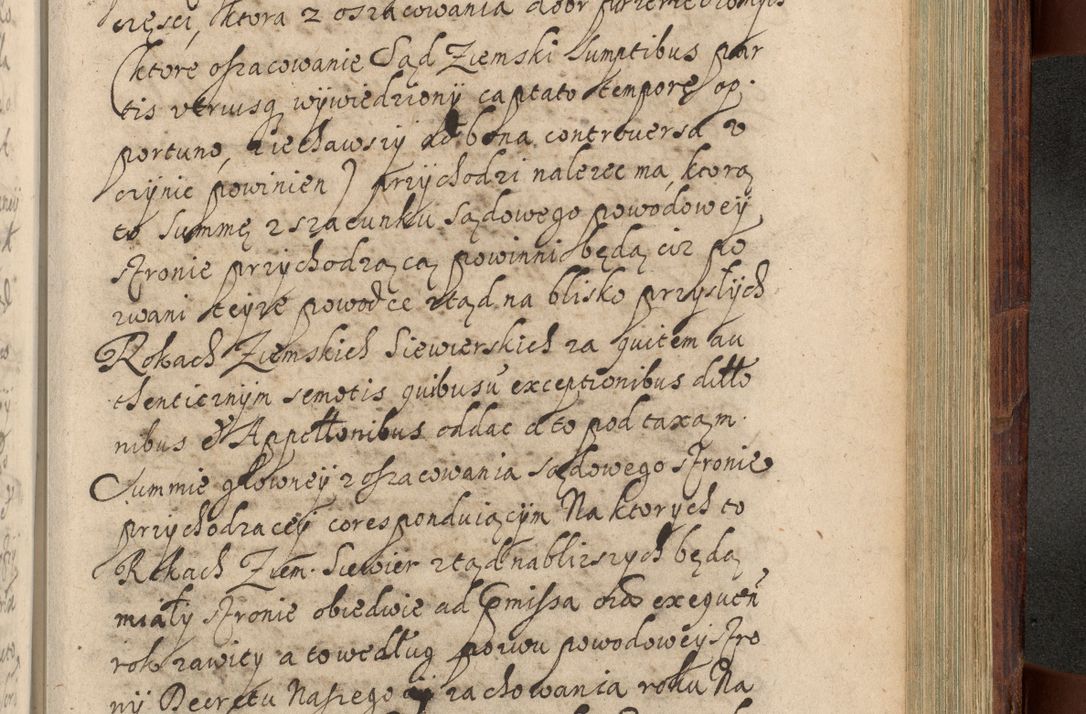 częsci, ktora z oszacowania dobr pirzerzeczonych
(ktore oszacowanie Sąd Ziemski sumptibus par
tis vtriusq wywiedziony captato tempore op.
portuno, ziechawszy ad bona controversa v
czynic powinien) przychodzi nalezec ma, ktorą
to summę z szacunku sądowego powodowey
stronie przychodzącą powinni będą ciż po
zwani teyże powodce ztąd na blisko przyszłych
Rokach Ziemskich Siewierskich za quitem au
thenticznym semotis quibusú exceptionibus dillo
nibus & Appellonibus oddac a to pod taxąm
Summie głowney z oszacowania sądowego stronie
przychodzącey corespondviącym Na ktorych to
Rokach Ziem. Siewier ztąd nablizszych będą
miały stronie obiedwie ad Pmissa exequen
rok zawity a to według pozwu powodowey stro
ny Decretu Naszego zachowania roku Na